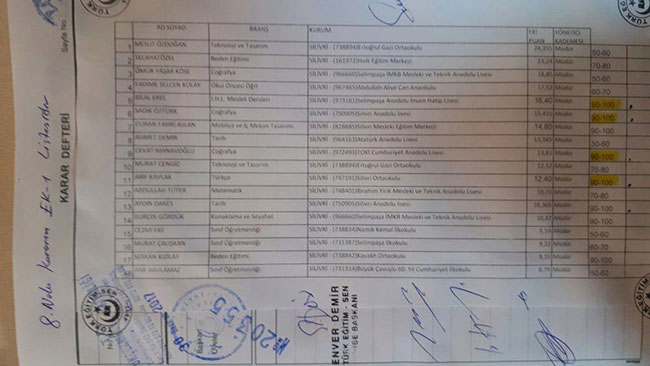 8. Nolu Kararın EK-1 Listesidir
KARAR DEFTERİ
Sayfa No
AD SOYAD BRANŞ KURUM EK1 PUAN YÖNETİCİ KADEMESİ
1 MESUT ÖZDOĞAN Teknoloji ve Tasarım SİLİVRİ - (738894)Ertuğrul Gazi Ortaokulu 24,355 Müdür 50-60
2 Beden Eğitimi SİLİVRİ - Halk Eğitimi Merkezi 23,24 Müdür 70-80
3 ÖMÜR YAŞAR KÖSE Coğrafya SİLİVRİ - (966660)Selimpaşa İMKB Mesleki ve Teknik Anadolu Lisesi 18,85 Müdür 50-60
4 FADİME SELCEN KOLAY Okul Öncesi Öğrt SİLİVRİ - (967465)Abdullah Aliye Can Anaokulu 17,52 Müdür 60-70
5 BİLAL EREL İ.H.L. Meslek Dersleri SİLİVRİ - (973181)Selimpaşa Anadolu İmam Hatip Lisesi 16,40 Müdür 90-100
6 SADIK ÖZTÜRK Coğrafya SİLİVRİ - (750905)Silivri Anadolu Lisesi 15,415 Müdür 90-100
7 Mobilya ve İç Mekan Tasarımı SİLİVRİ - Silivri Mesleki Eğitim Merkezi 14,60 Müdür 70-80
8 AHMET DEMİR Tarih SİLİVRİ - (964163)Atatürk Anadolu Lisesi 13,945 Müdür 50-60
9 Coğrafya SİLİVRİ - (972493)TOKİ Cumhuriyet Anadolu Lisesi Müdür 90-100
10 MURAT CENGİZ Teknoloji ve Tasarım SİLİVRİ - (738894)Ertuğrul Gazi Ortaokulu 12,52 Müdür 70-80
11 ARİF KAVLAK Türkçe SİLİVRİ - (747191)Silivri Ortaokulu 12,40 Müdür 90-100
12 ABDULLAH TÜTER Matematik SİLİVRİ - (748401)İbrahim Yirik Mesleki ve Teknik Anadolu Lisesi 10,78 Müdür 70-80
13 AYDIN DAKEŞ Tarih SİLİVRİ - (750905)Silivri Anadolu Lisesi 10,365 Müdür 50-60
14 BURÇİN GÖRDÜK Konaklama ve Seyahat SİLİVRİ - (966660)Selimpaşa İMKB Mesleki ve Teknik Anadolu Lisesi 10,32 Müdür 80-90
15 CEZMİ EKE Sınıf Öğretmenliği SİLİVRİ - (738834)Namık Kemal İlkokulu 9,59 Müdür 50-60
16 MURAT ÇALIŞKAN Sınıf Öğretmenliği SİLİVRİ - (731387)Selimpaşa İlkokulu 9,23 Müdür
17 SERKAN KIZILAY Beden Eğitimi SİLİVRİ - (738842)Kavaklı Ortaokulu Müdür
18 Sınıf Öğretmenliği SİLİVRİ - (731314)Büyük Çavuşlu 60. Yıl Cumhuriyet İlkokulu 8,79 Müdür 50-60
TÜRK EĞİTİM-SEN
2017
№ 20355
ENVER DEMİR
TÜRK EĞİTİM - SEN
BAŞKANI